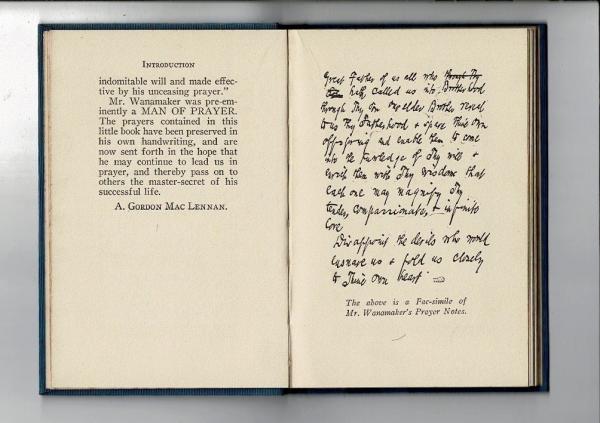 INTRODUCTION
indomitable will and made effec-
tive by his unceasing prayer."
Mr. Wanamaker was pre-em-
inently a MAN OF PRAYER.
The prayers contained in this
little book have been preserved in
his own handwriting, and are
now sent forth in the hope that
he may continue to lead us in
prayer, and thereby pass on to
others the master-secret of his
successful life.
A. GORDON MAC LENNAN.
Great Father of us all who through Thy
hath called us into Brotherhood
through Thy Son our elder Brother reveal
to us Thy Fatherhood & spare Thine own
offspring and enable them to come
into the knowledge of Thy will &
enrich them with Thy wisdom that
each one may magnify Thy
tender, compassionate, & infinite
love
Disappoint the devils who would
ensnare us & fold us closely
to Thine own heart
The above is a Fac-simile of
Mr. Wanamaker's Prayer Notes.